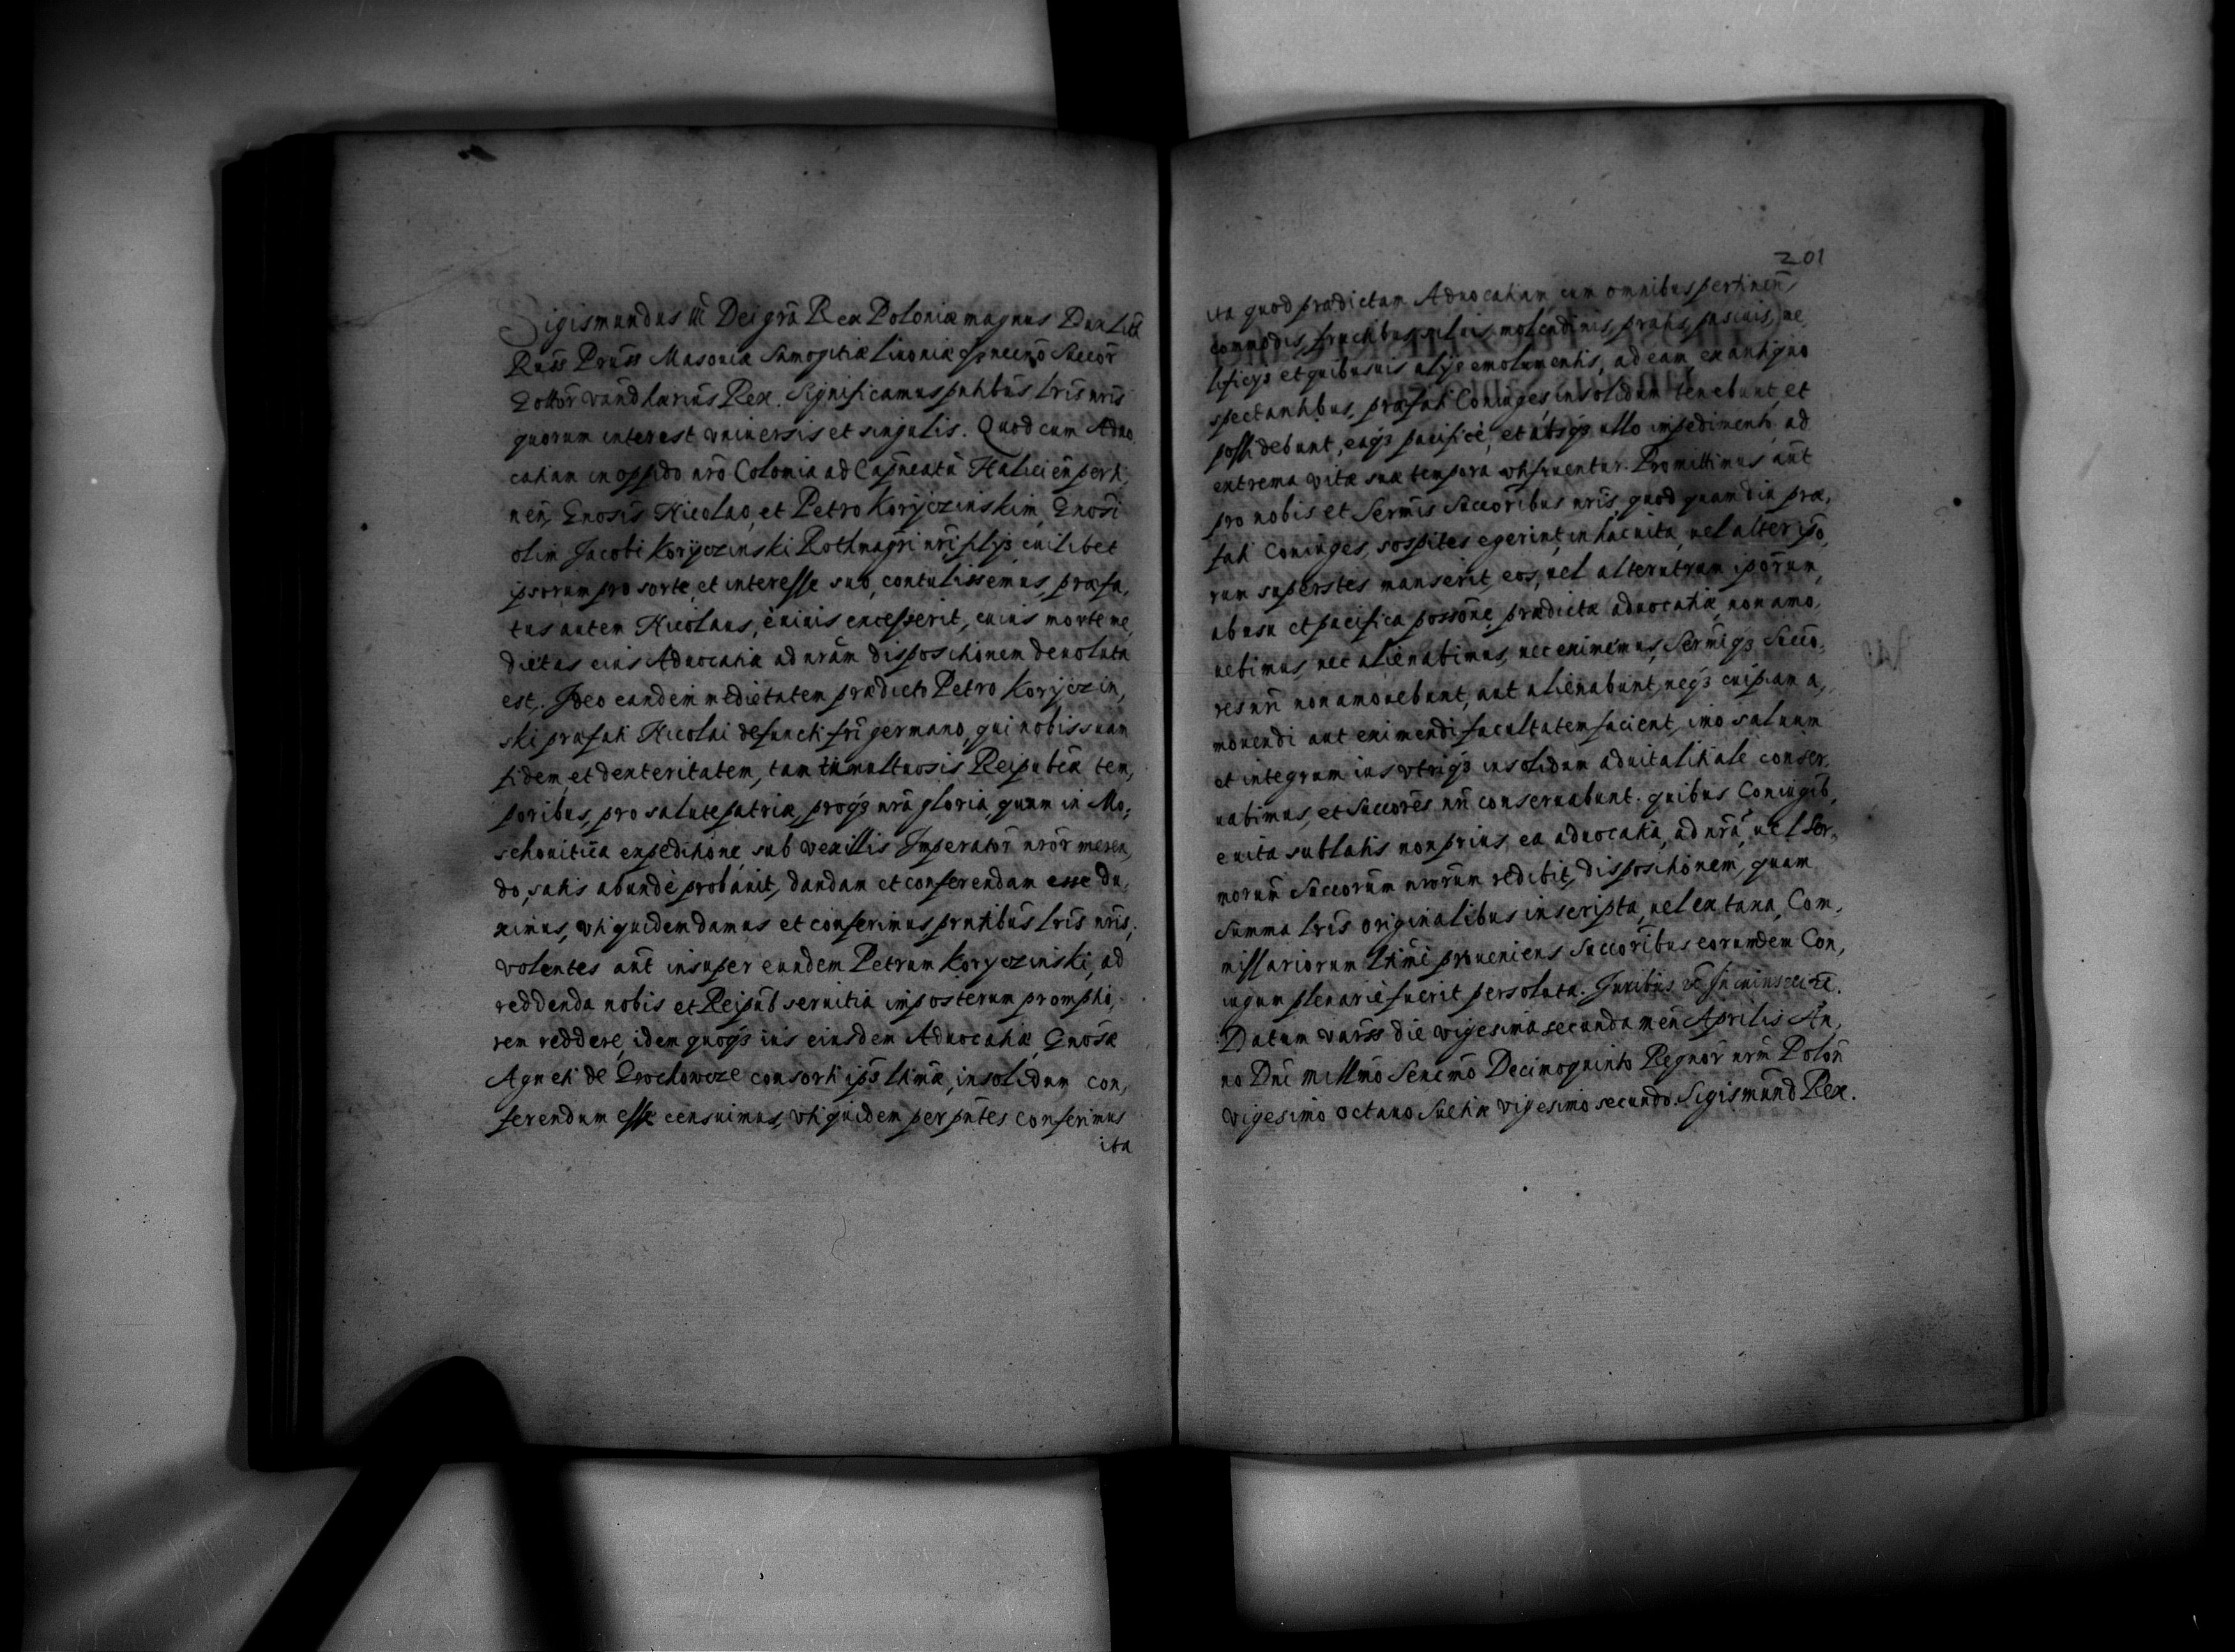 Sigismundus III Dei grã Rex Poloniæ magnus Dux Litt
Russ Pruss Masoviæ Samogitiæ Livoniæ Succor
Gottor Vand hærius Rex. Significamus pntibus lris nris
quorum interest vniuersis et singulis. Quod cum Aduo,
catiam in oppido nro Colomia ad Halicien perti,
nen, Gnosis Nicolao, et Petro Koryczinskim, Gnosi
olim Jacobi Koryczinski Rothmagri nri filijs, cuilibet
ipsorum pro sorte, et interesse suo, contulissemus, præfa,
tus autem Nicolaus, è viuis excesserit, cuius morte me,
dietas eius Aduocatiæ ad nram dispositionem deuoluta
est. Ideo eandem medietatem prædicto Petro Koryczin,
ski præfati Nicolai defuncti fri germano, qui nobis suam
fidem, et dexteritatem, tam tumultuosis Reipublicæ tem,
poribus, pro salute patriæ, proq3 nra gloria, quam in Mo,
schouitica expedihone, sub vexillis Imperator nror meren,
do, satis abundè probauit, dandam et conferendam esse du,
ximus, vti quidem damus et conferimus prntibus lris nris,
volentes aut insuper eundem Petrum Koryczinski, ad
reddenda nobis et Reipub seruitia imposterum promptio,
rem reddere, idem quoq3 ius eiusdem Aduocatiæ, Gnosæ
Agneti de Grochowcze consorti ips ltimæ, in solidum con,
ferendum esse censuimus, vti quidem per pntes conferimus
ita
201
ita quod prædictam Aduocatiam, cum omnibus pertinen,
commodis, fructibus, siluis, molendinis, pratis, pascuis, me,
lificijs et quibusuis alijs emolumentis, ad eam, ex antiquo
spectantibus, præfati Coniuges, in solidum tenebunt, et
possidebunt, eaq3 pacificè, et absq3 ullo impedimento, ad
extrema vitæ suæ tempora vtifruentur. Promittimus aut
pro nobis et Sermis Succoribus nris, quod quamdiu præ,
fati Coniuges, sospites egerint, in hac uita, uel alter ipso,
rum superstes manserit, eos, uel alterutrum iporum,
ab usu et pacifica possone, prædictæ aduocatiæ, non amo,
uebimus, nec alienabimus, nec eximemus, Sermiq3 Succo,
res nri non amouebunt, aut alienabunt, neq3 cuipiam a,
mouendi aut eximendi facultatem facient, imo saluum
et integrum ius vtriq3 in solidum aduitalitiale conser,
uabimus, et Succores nri conseruabunt. quibus Coniugib,
e uita sublatis non prius, ea aduocatia, ad nrã, uel Ser,
morum Succorum nrorum redibit, dispositionem, quam
Summa lris originalibus inscripta, uel ex taxa, Com,
missariorum ltimè proueniens Succoribus eorumdem Con,
iugum plenariè fuerit persoluta. Juribus
Datum Varss die vigesima secunda men Aprilis An,
no Dni millmo Sexcmo Decimoquinto Regnor nrm Polon
vigesimo octauo Suetiæ vigesimo secundo. Sigismund Rex.